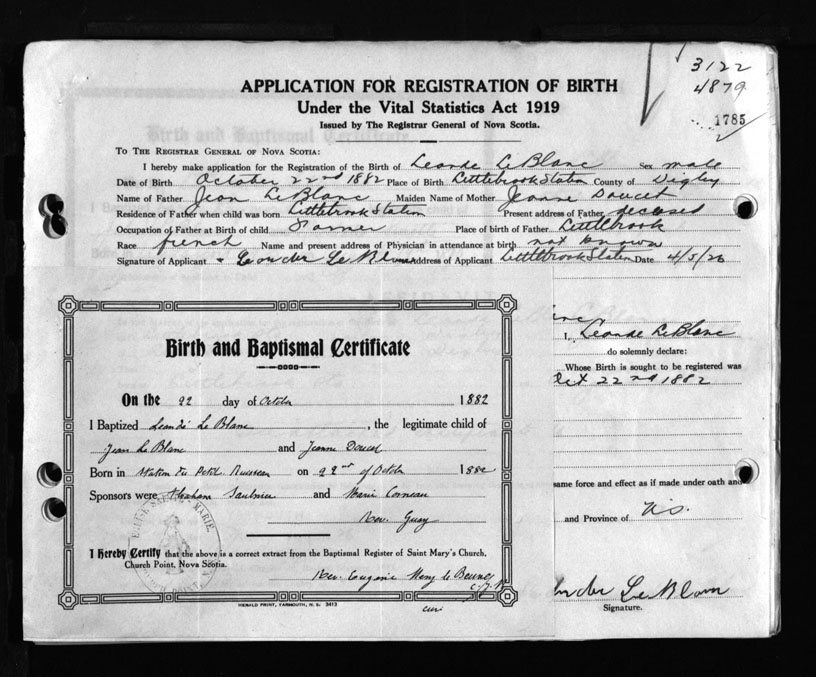 3122
4879
1785
APPLICATION FOR REGISTRATION OF BIRTH
Under the Vital Statistics Act 1919
Issued by The Registrar General of Nova Scotia.
TO THE REGISTRAR GENERAL OF NOVA SCOTIA:
I hereby make application for the Registration of the Birth of Leande LeBlanc Sex male
Date of Birth October 22nd 1882 Place of Birth Littlebrook Station County of Digby
Name of Father Jean LeBlanc Maiden Name of Mother Jeanne Doucet
Residence of Father when child was born Littlebrook Station Present address of Father deceased
Occupation of Father at Birth of child Farmer Place of birth of Father Littlebrook
Race french Name and present address of Physician in attendance at birth not known
Signature of Applicant Leander LeBlanc Address of Applicant Littlebrook Station Date 4/5/26
I, Leande LeBlanc
do solemnly declare:
Whose Birth is sought to be registered was
Oct 22nd 1882
same force and effect as if made under oath and
and Province of N.S.
LeBlanc
Signature.
Birth and Baptismal Certificate
On the 22 day of October 1882
I Baptized Leande Le Blanc, the legitimate child of
Jean Le Blanc and Jeanne Doucet
Born in Station du Petit Ruisseau on 22nd of October 1882
Sponsors were Abraham Saulnier and Marie Comeau
Rev. Guay
I Hereby Certify that the above is a correct extract from the Baptismal Register of Saint Mary's Church,
Church Point, Nova Scotia.
Rev. Eugene
HERALD PRINT, YARMOUTH, N. S. 3413